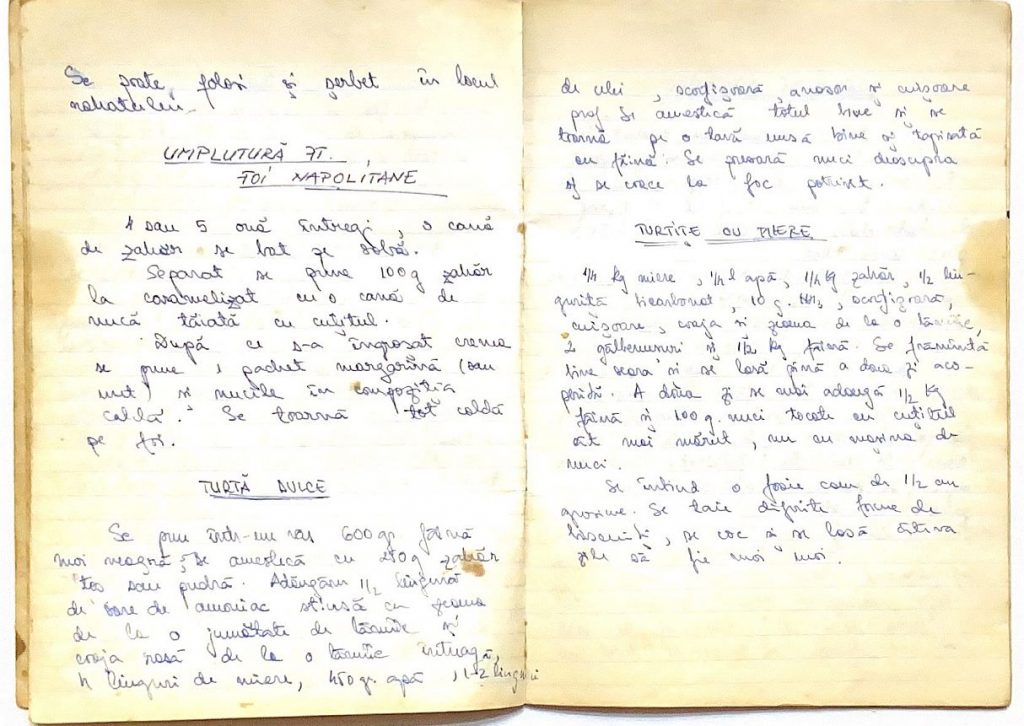 Se poate folosi și șerbet în locul
rahatului.
UMPLUTURĂ PT.
FOI NAPOLITANE
4 sau 5 ouă întregi, o cană
de zahăr se bat pe sobă.
Separat se pune 100 g zahăr
la caramelizat cu o cană de
nucă tăiată cu cuțitul.
După ce s-a îngroșat crema
se pune 1 pachet margarină (sau
unt) și nucile în compoziția
caldă. Se toarnă tot caldă
pe foi.
TURTĂ DULCE
Se pun într-un vas 600 gr făină
mai neagră, se amestică cu 250 g zahăr
tos sau pudră. Adăugăm 1/2 lingură
de sare de amoniac stinsă cu zeama
de la o jumătate de lămîie și
coaja rasă de la o lămîie întreagă,
4 linguri de miere, 450 gr. apă, 1-2 linguri
de ulei, scorțișoară, anason și cuișoare
praf. Se amestică totul bine și se
toarnă pe o tavă unsă bine și tapisată
cu făină. Se presară nuci deasupra
și se coace la foc potrivit.
TURTIȚE CU MIERE
1/4 kg miere, 1/4 l apă, 1/4 kg zahăr, 1/2 lin-
guriță bicarbonat, 10 g. NH3, scorțișoară,
cuișoare, coaja și zeama de la o lămîie,
2 gălbenușuri și 1/2 kg făină. Se frămîntă
bine seara și se lasă pînă a doua zi aco-
perită. A doua zi se mai adaugă 1/2 kg
făină și 100 g. nuci tocate cu cuțitul
cît mai mărut, nu cu mașina de
nuci.
Se întind o foaie cam de 1/2 cm
grosime. Se taie diferite forme de
biscuiți, se coc și se lasă cîteva
zile să fie mai moi.